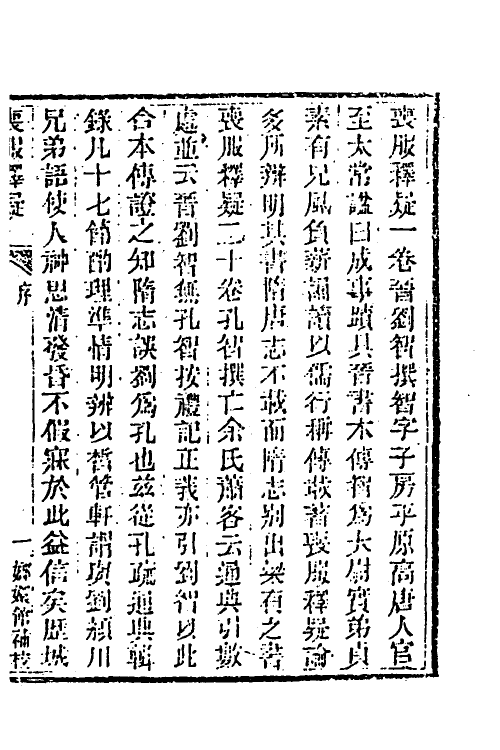 喪服釋疑一卷晉劉智撰智字子房平原高唐人官
至太常諡曰成事蹟具晉書本傳智爲太尉寔弟貞
素有兄風負薪誦讀以儒行稱傳載著喪服釋疑論
多所辨明其書隋唐志不載而隋志別出梁有之書
喪服釋疑二十卷孔智撰亡余氏蕭客云通典引數
處並云晉劉智無孔智按禮記正義亦引劉智以此
合本傳證之知隋志誤劉爲孔也茲從孔疏通典輯
錄凡十七節酌理準情明辨以晢管輅謂與劉潁川
兄弟語使人神思淸發昏不假寐於此益信矣歷城
喪服釋疑
序
一
嫏嬛館補校